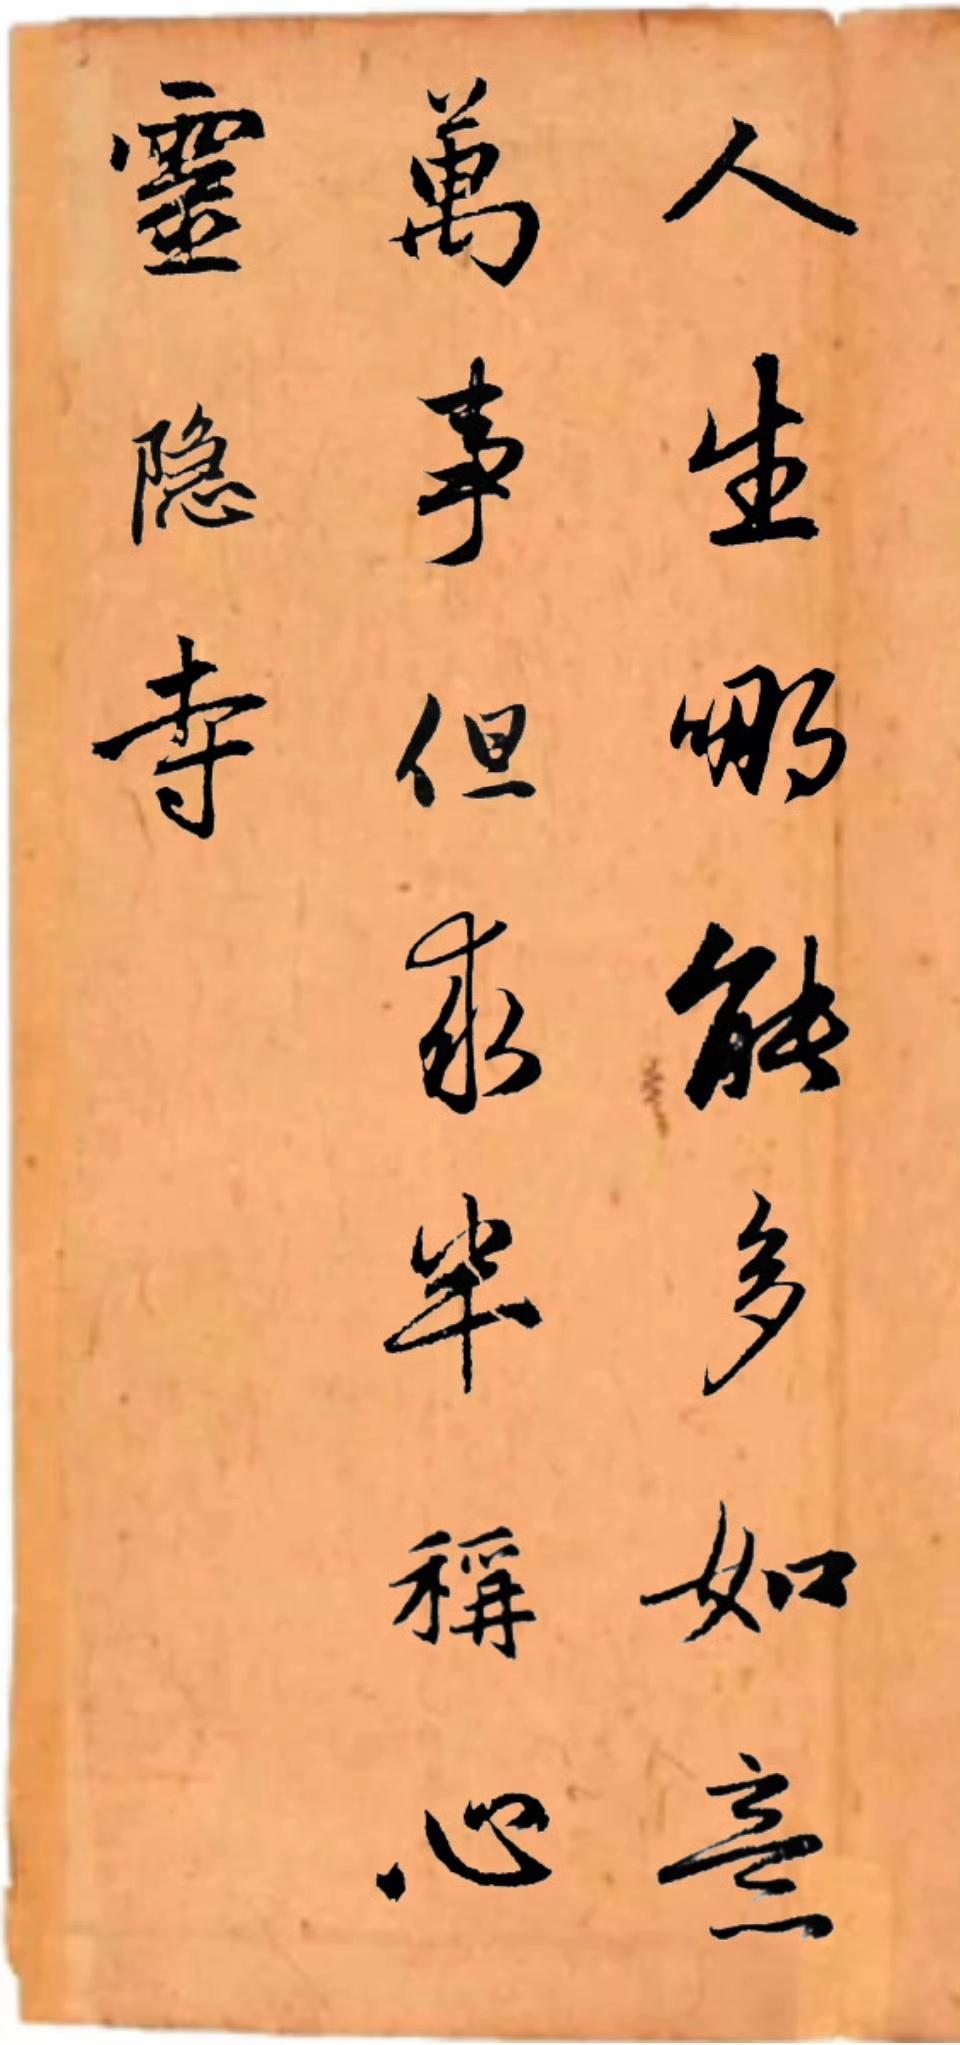 人生哪能多如意
萬事但求半稱心
靈隐寺